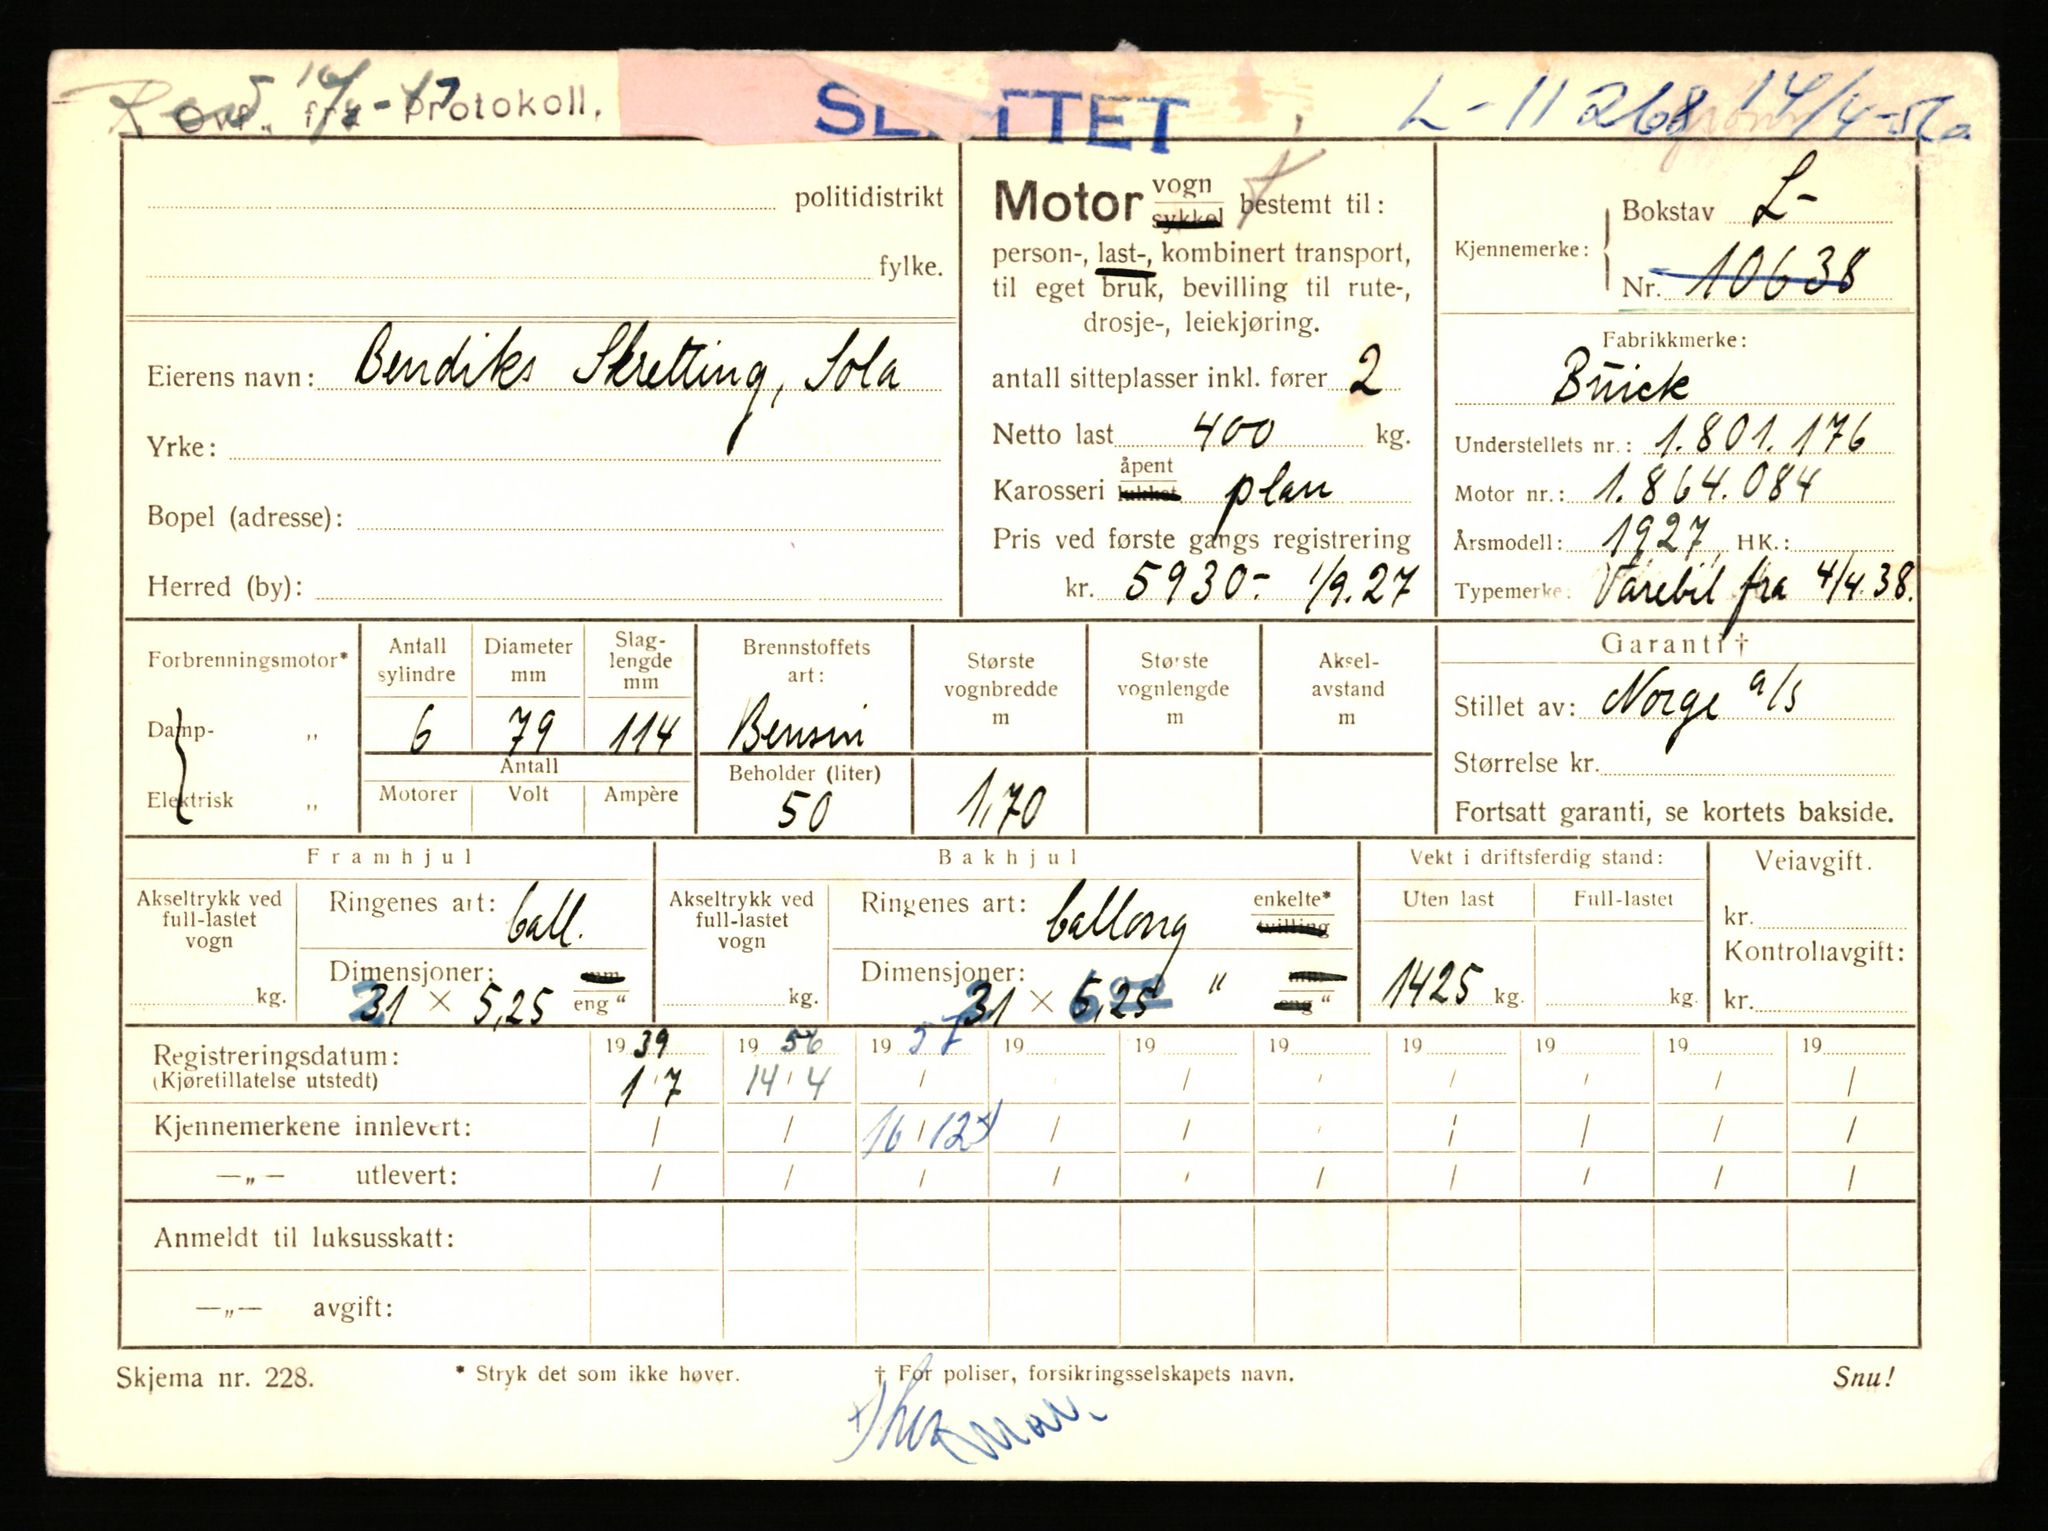 Overf. fra protokoll,
SLETTET
L-11268 14/4-56
politidistrikt
fylke.
Eierens navn: Bendiks Skretting, Sola
Yrke:
Bopel (adresse):
Herred (by):
Motor vogn sykkel bestemt til:
person-, last-, kombinert transport,
til eget bruk, bevilling til rute-,
drosje-, leiekjøring.
antall sitteplasser inkl. fører 2
Netto last 400 kg.
Karosseri åpent lukket plan
Pris ved første gangs registrering
kr. 5930.- 1/9.27
Kjennemerke: Bokstav L-
Nr. 10638
Fabrikkmerke:
Buick
Understellets nr.: 1.801.176
Motor nr.: 1.864.084
Årsmodell: 1927, HK.:
Typemerke: Varebil fra 4/4.38.
Forbrenningsmotor*
Damp- „
Elektrisk „
Antall sylindre 6
Diameter mm 79
Slag-lengde mm 114
Antall
Motorer Volt Ampère
Brennstoffets art:
Bensin
Beholder (liter)
50
Største vognbredde m
1,70
Største vognlengde m
Aksel-avstand m
Garanti †
Stillet av: Norge a/s
Størrelse kr.
Fortsatt garanti, se kortets bakside.
Framhjul
Akseltrykk ved full-lastet vogn
kg.
Ringenes art: ball.
Dimensjoner: mm
31 × 5,25 eng "
Bakhjul
Akseltrykk ved full-lastet vogn
kg.
Ringenes art: ballong enkelte* tvilling
Dimensjoner: mm
31 × 5,25 " eng "
Vekt i driftsferdig stand:
Uten last Full-lastet
1425 kg. kg.
Veiavgift.
kr.
Kontrollavgift:
kr.
Registreringsdatum: 1939 1956 1957 19 19 19 19 19 19 19
(Kjøretillatelse utstedt) 1/7 14/4 / / / / / / / /
Kjennemerkene innlevert: / / 16/12 x) / / / / / / /
—„— utlevert: / / / / / / / / / /
Anmeldt til luksusskatt:
—„— avgift:
Skjema nr. 228.
* Stryk det som ikke høver.
† For poliser, forsikringsselskapets navn.
Snu!